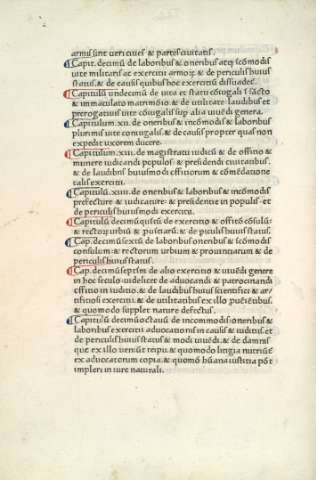 armis sint veri ciues & partes ciuitatis.
Capit. decimū de laboribus & oneribus atq; icōmodis
vite militaris ac exercitii armoꝝ. & de periculis huius
status. & de causis quibus hoc exercitiū dissuadet.
Capitulū undecimū de vita et statu cōiugali I sācto
& immaculato matrimōio. & de vtilitate laudibus et
prerogatiuis vite cōiugalis sup alia viuēdi genera.
Capitulum .xii. de oneribus & incōmodis & laboribus
plurimis vite coniugalis. & de causis propter quas non
expedit vxorem ducere.
Capitulum .xiii. de magistratu iudicū & de offitio &
munere iudicandi populos. & presidendi ciuitatibus.
& de laudibus huiusmodi offitiorum & cōmēdatione
talis exercitii.
Capitulum .xiiii. de oneribus & laboribus & incōmodis
prefecture & iudicature. & presidentie in populis. et
de periculis huiusmodi exercitii.
Capitulū decimūquītū de exercitio & offitio cōsulū.
& rectoꝝ vrbiū & puīciarū. & de piculis huius status.
Cap. decimūsextū de laboribus oneribus & icōmodis
consulum. & rectorum urbium & prouinciarum & de
periculis huius status.
Cap. decimūseptīm de alio exercitio & viuēdi genere
in hoc seculo. videlicet de aduocandi & patrocinandi
offitio in iuditio. & de laudibus huius scientifici & ar/
tifitiosi exercitii. & de vtilitatibus ex illo puēiētibus.
& quomodo supplet nature defectus.
Capitulū decimūoctauū de incommodis. oneribus &
laboribus exercitii aduocationis in causis & iuditiis. et
de periculis huius status & modi viuēdi. & de damnis
que ex illo veniūt reipu. & quomodo litigia nutriūt̄
ex aduocatorum copia. & quomō hūana iustitia pōt
impleri in iure naturali.